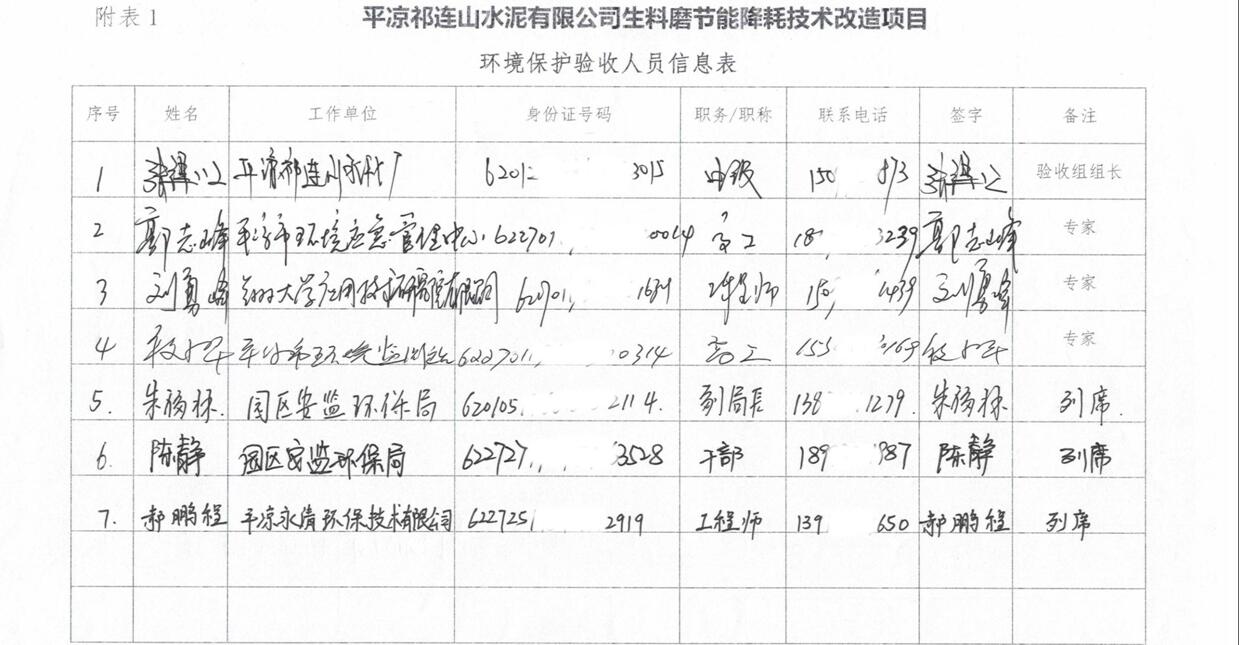 附表1
平凉祁连山水泥有限公司生料磨节能降耗技术改造项目
环境保护验收人员信息表
序号 姓名 工作单位 身份证号码 职务/职称 联系电话 签字 备注
1 平凉祁连山水泥厂 6201 3015 中级 150 873 验收组组长
2 郭志峰 平凉市环境应急管理中心 622701 0014 高工 18 3239 郭志峰 专家
3 刘勇峰 兰州大学应用技术研究院有限公司 62701 工程师 15 刘勇峰 专家
4 平凉市环境监测站 622701 0314 高工 153 169 专家
5. 朱杨林 园区安监环保局 620105 2114. 副局长 138 1279. 朱杨林 列席.
6. 陈静 园区安监环保局 622727 3528 干部 189 987 陈静 列席
7. 郝鹏程 平凉永清环保技术有限公司 622725 2919 工程师 139 650 郝鹏程 列席